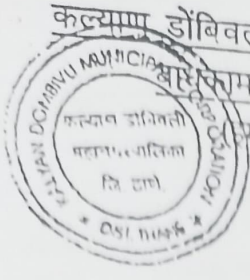 कल्याण डोंबिवल
बांधकाम
KALYAN DOMBIVLI MUNICIPAL CORPORATION
कल्याण डोंबिवली
महानगरपालिका
जि. ठाणे.
* DIST. THANE *